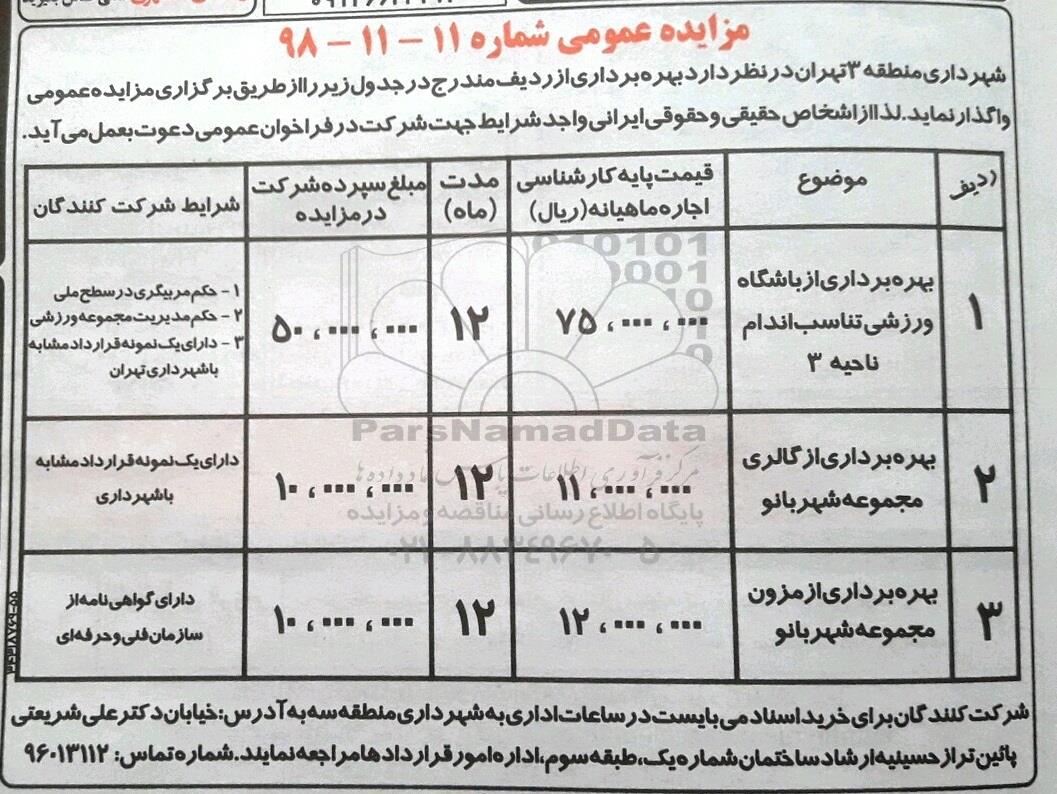 مزایده عمومی شماره ۱۱ – ۱۱ – ۹۸
شهرداری منطقه ۳ تهران در نظر دارد بهره برداری از ردیف مندرج در جدول زیر را از طریق برگزاری مزایده عمومی
واگذار نماید. لذا از اشخاص حقیقی و حقوقی ایرانی واجد شرایط جهت شرکت در فراخوان عمومی دعوت بعمل می آید.
ردیف
موضوع
قیمت پایه کارشناسی
اجاره ماهیانه (ریال)
مدت
(ماه)
مبلغ سپرده شرکت
در مزایده
شرایط شرکت کنندگان
۱
بهره برداری از باشگاه
ورزشی تناسب اندام
ناحیه ۳
۷۵،۰۰۰،۰۰۰
۱۲
۵۰،۰۰۰،۰۰۰
۱- حکم مربیگری در سطح ملی
۲- حکم مدیریت مجموعه ورزشی
۳- دارای یک نمونه قرارداد مشابه
با شهرداری تهران
۲
بهره برداری از گالری
مجموعه شهربانو
۱۱،۰۰۰،۰۰۰
۱۲
۱۰،۰۰۰،۰۰۰
دارای یک نمونه قرارداد مشابه
با شهرداری
۳
بهره برداری از مزون
مجموعه شهربانو
۱۲،۰۰۰،۰۰۰
۱۲
۱۰،۰۰۰،۰۰۰
دارای گواهی نامه از
سازمان فنی و حرفه ای
شرکت کنندگان برای خرید اسناد می بایست در ساعات اداری به شهرداری منطقه سه به آدرس: خیابان دکتر علی شریعتی
پائین تر از حسینیه ارشاد ساختمان شماره یک، طبقه سوم، اداره امور قراردادها مراجعه نمایند. شماره تماس: ۹۶۰۱۳۱۱۲
ParsNamadData
مرکز فرآوری اطلاعات پارس نماد داده ها
پایگاه اطلاع رسانی مناقصه و مزایده
۰۲۱-۸۸۳۴۹۶۷۰-۵